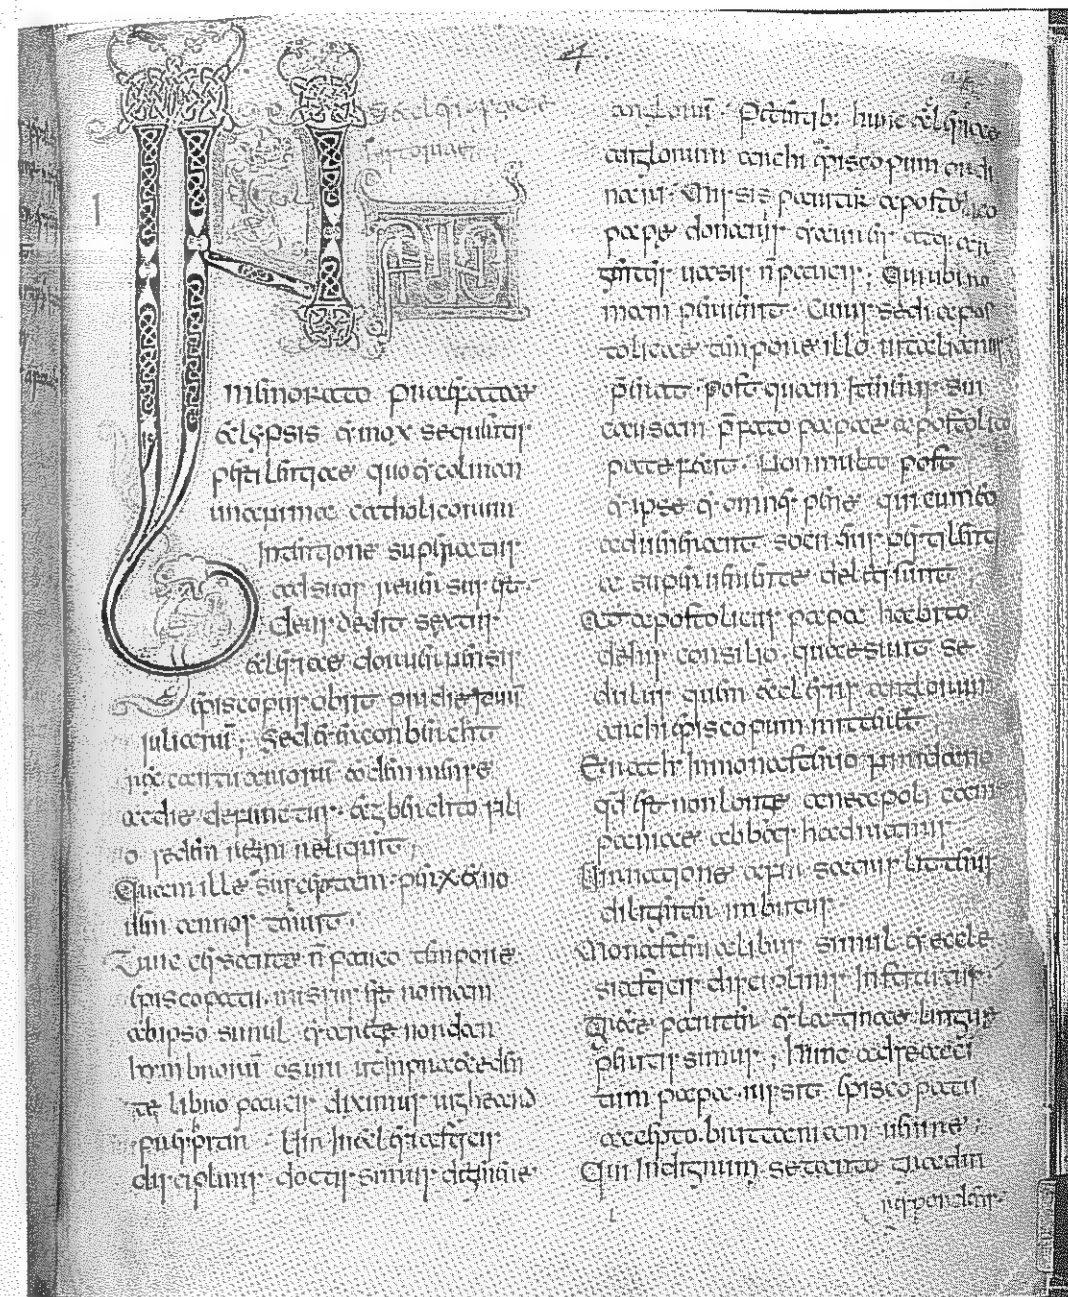 4.
IN
memorato praefatae
eclypsis et mox sequentis
pestilentiae quo et colman
unanima catholicorum
intentione superatus
ad suos reuersus est.
Deus dedit sextus
eclesiae doruuernensis
episcopus obiit pridie iduum
iuliarum; Sed et erconberchto
rex cantuariorum eodem mense
ac die defunctus. ecgberchto fili
o sedem regni reliquit;
Quam ille susceptam per ix et no
uem annos tenuit;
Tunc cessante non pauco tempore
episcopatu. missus est romam
ab ipso simul et a rege nordan
hymbrorum osuiu ut in praeceden
te libro paucis diximus uigheard
presbyter. uir in eclesiasticis
disciplinis doctissimus de genere
anglorum. petentibus hunc eclesiae
anglorum archiepiscopum ordi
nari. Missis pariter apostolico
papae donariis et aureis atque ar
genteis uasis non paucis; Qui ubi ro
mam peruenit. Cuius sedi apos
tolicae tempore illo uitalianus
praeerat. postquam itineris sui
causam praefato papae apostolico
patefecit. Non multo post
et ipse et omnes pene qui cum eo
aduenerant socii eius pestilenti
a superueniente deleti sunt;
At apostolicus papa habito
de his consilio. quaesiuit se
dulus quem eclesiis anglorum
archiepiscopum mitteret
Erat in monasterio niridano
quod est non longe a neapoli cam
paniae abbas hadrianus
Uir natione afir sacris litteris
diligenter imbutus.
Monasterialibus simul et eccle
siasticis disciplinis institutus
Grecae pariter et latinae linguae
peritissimus; hunc ad se acci
tum papa iussit episcopatu
accepto. brittaniam uenire;
Qui indignum se tanto gradui
respondens.